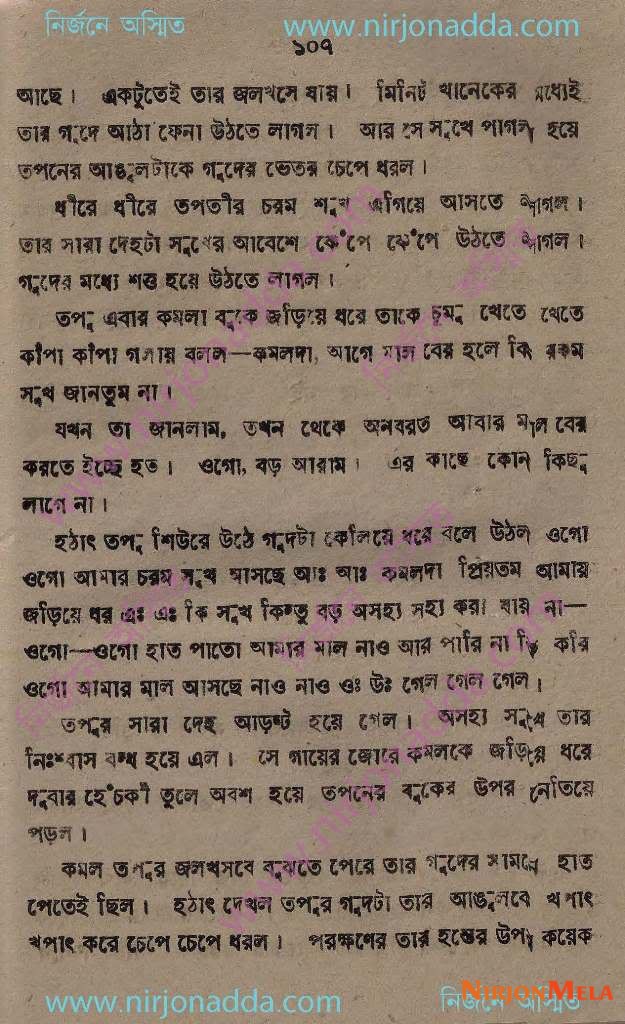 নির্জনে অস্মিত www.nirjonadda.com
১০৭
আছে। একটুতেই তার জলখসে যায়। মিনিট খানেকের মধ্যেই
তার গুদে আঠা ফেনা উঠতে লাগল। আর সে সুখে পাগল হয়ে
তপনের আঙুলটাকে গুদের ভেতর চেপে ধরল।
ধীরে ধীরে তপতীর চরম সুখ এগিয়ে আসতে লাগল।
তার সারা দেহটা সুখের আবেশে কেঁপে কেঁপে উঠতে লাগল।
গুদের মধ্যে শক্ত হয়ে উঠতে লাগল।
তপু এবার কমলা বুকে জড়িয়ে ধরে তাকে চুমু খেতে খেতে
কাঁপা কাঁপা গলায় বলল—কমলদা, আগে মাল বের হলে কি রকম
সুখ জানতুম না।
যখন তা জানলাম, তখন থেকে অনবরত আবার মাল বের
করতে ইচ্ছে হত। ওগো, বড় আরাম। এর কাছে কোন কিছু
লাগে না।
হঠাৎ তপু শিউরে উঠে গুদটা কেলিয়ে ধরে বলে উঠল ওগো
ওগো আমার চরম সুখ আসছে আঃ আঃ কমলদা প্রিয়তম আমায়
জড়িয়ে ধর এঃ এঃ কি সুখ কিন্তু বড় অসহ্য সহ্য করা যায় না—
ওগো—ওগো হাত পাতো আমার মাল নাও আর পারি না কি করি
ওগো আমার মাল আসছে নাও নাও ওঃ উঃ গেল গেল গেল।
তপুর সারা দেহ আড়ষ্ট হয়ে গেল। অসহ্য সুখে তার
নিঃশ্বাস বন্ধ হয়ে এল। সে গায়ের জোরে কমলকে জড়িয়ে ধরে
দুবার হেঁচকী তুলে অবশ হয়ে তপনের বুকের উপর নেতিয়ে
পড়ল।
কমল তপুর জলখসবে বুঝতে পেরে তার গুদের সামনে হাত
পেতেই ছিল। হঠাৎ দেখল তপুর গুদটা তার আঙুলবে খপাৎ
খপাৎ করে চেপে চেপে ধরল। পরক্ষণের তার হস্তের উপর কয়েক
www.nirjonadda.com নির্জনে অস্মিত
NIRJONMELA